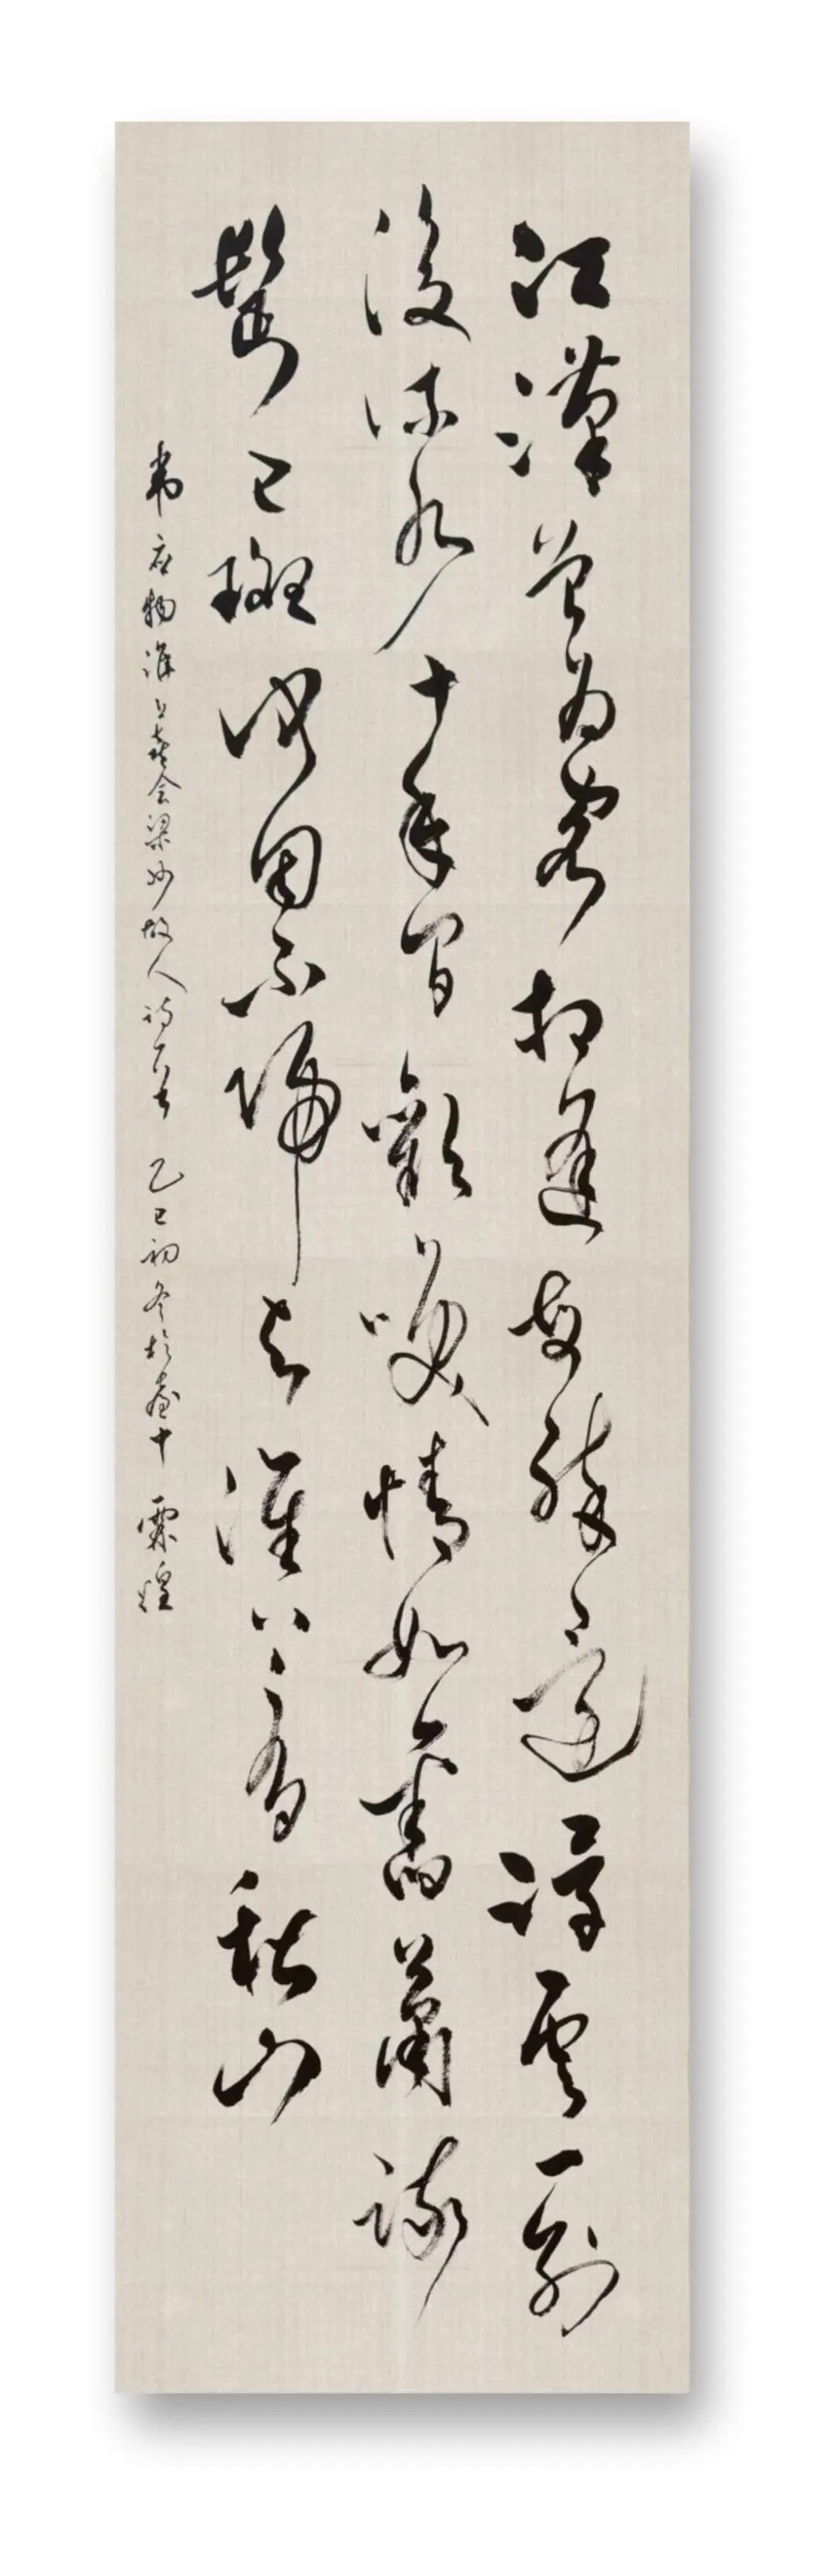 江漢曾為客相逢每醉還浮雲一别
後流水十年間歡笑情如舊蕭疏
鬢已斑何因不歸去淮上有秋山
韦应物淮上喜会梁州故人诗一首 乙巳初冬於 十 霖煌